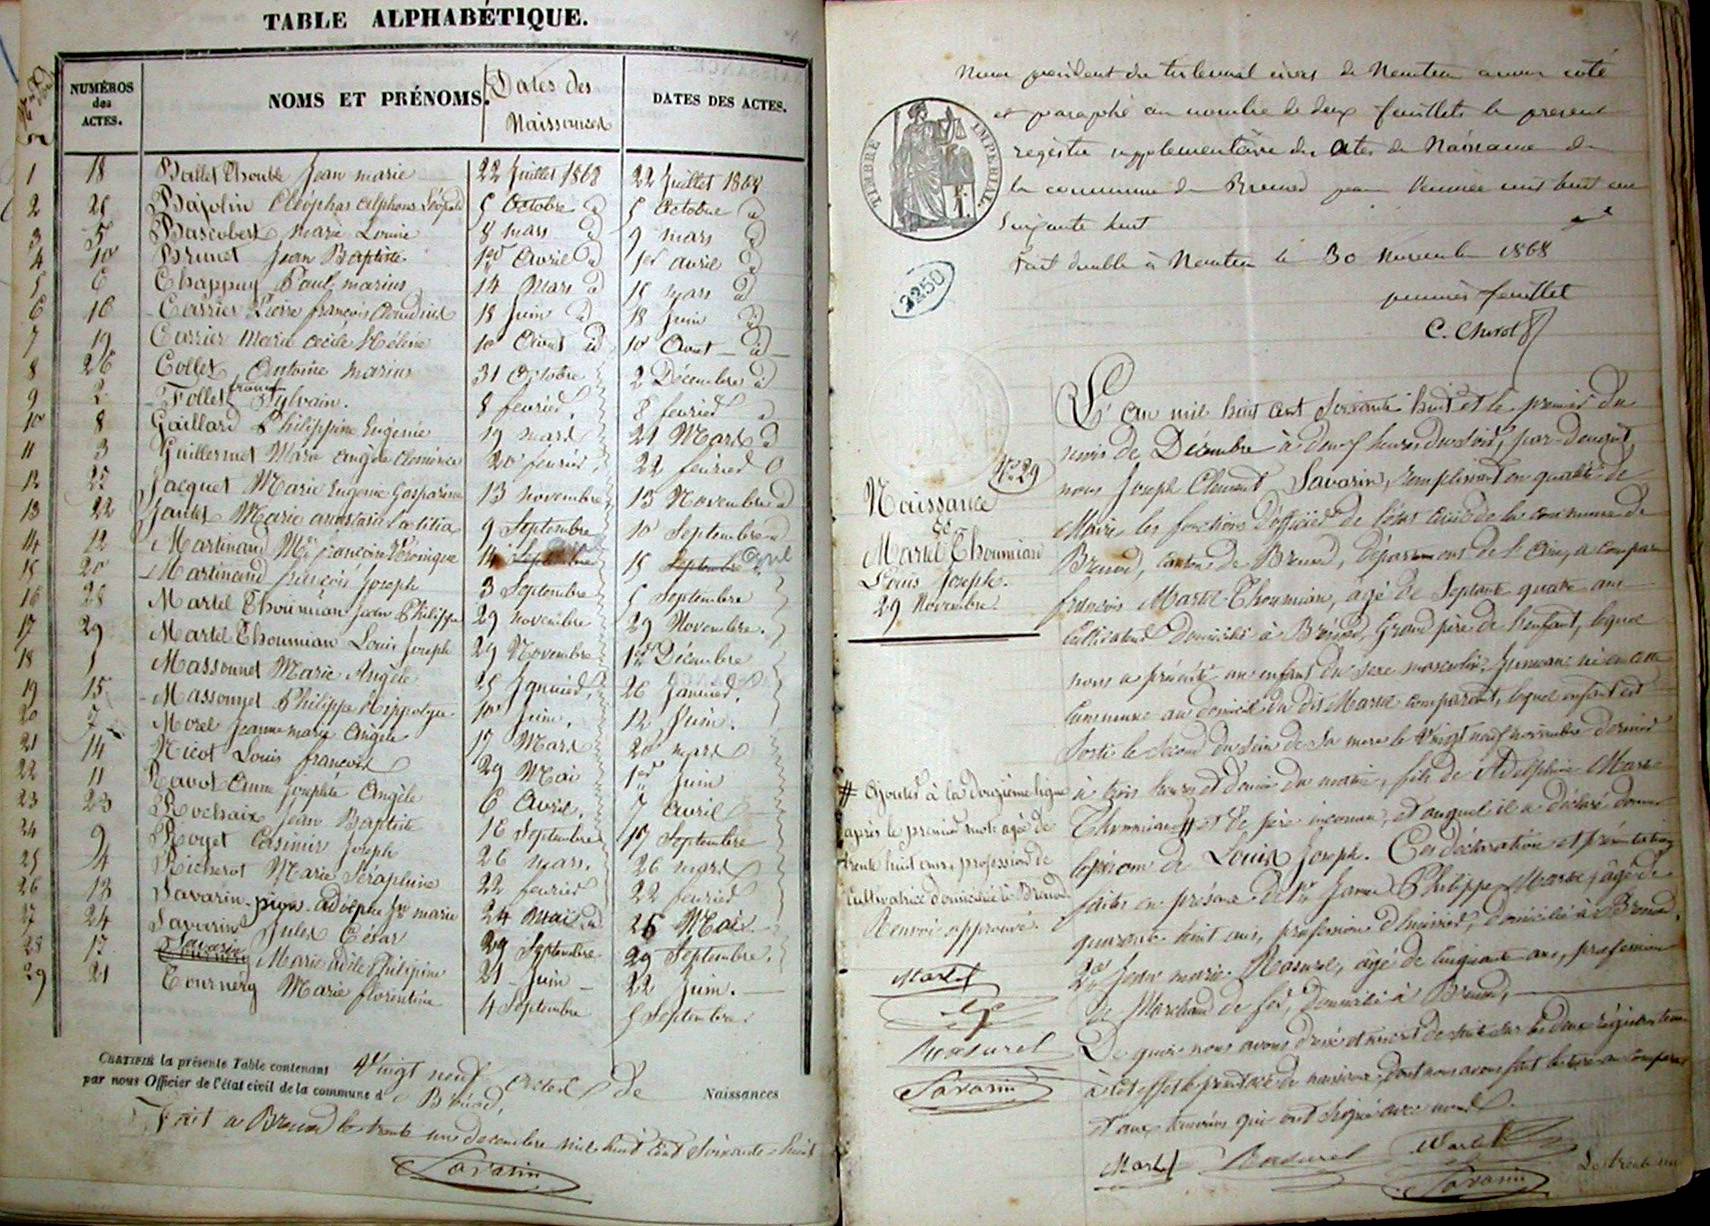 TABLE ALPHABÉTIQUE.
NUMÉROS des ACTES.
NOMS ET PRÉNOMS.
Dates des Naissances
DATES DES ACTES.
1 18 Ballet Thouble Jean marie 22 Juillet 1868 22 Juillet 1868
2 Bajolin Cléophas alphonse Léopold 5 Octobre id 5 Octobre id
3 5 Bascobert marie Louise 8 mars id 9 mars id
4 10 Brunet Jean Baptiste 1er Avril id 1er avril id
5 6 Chappuy Paul marius 14 Mars id 15 mars id
6 16 Carrier Pierre françois Claudius 18 Juin id 18 Juin id
7 19 Carrier Marie Cécile Hélène 10 Aout id 10 Aout id
8 26 Collet Antoine Marius 31 Octobre 2 Décembre id
9 2 Follet françois Sylvain. 8 fevrier 8 fevrier id
10 8 Gaillard Philippine Eugénie 19 mars 21 Mars id
11 3 Guillermet Marie Angèle 20 fevrier 22 fevrier
12 Jacquet Marie Eugenie Gasparine 13 novembre 13 Novembre id
13 22 Marie anastasie Laetitia 9 Septembre 10 Septembre
14 12 Martinand Mie françoise Véronique 14 15 Avril
15 20 Martinand françois Joseph 3 Septembre 5 Septembre
16 28 Martel Thoumian Jean Philippe 29 novembre 29 Novembre.
17 29 Martel Thoumian Louis Joseph 29 Novembre 1er Décembre
18 1 Massonnet Marie Angèle 25 Janvier 26 Janvier.
19 15 Massonnet Philippe Hippolyte 10 Juin. 12 Juin.
20 7 Morel Jeanne marie Angèle 17 Mars 20 mars
21 14 Nicot Louis francois 29 Mai 1er Juin
22 11 Ravot Anne Josephte Angèle 6 Avril. 7 avril
23 23 Rochaix Jean Baptiste 16 Septembre 17 Septembre
24 9 Royet Casimir Joseph 26 mars. 26 mars
25 4 Richerot Marie Séraphine 22 fevrier 22 fevrier
26 13 Savarin-pion adolphe Jh marie 24 Mai 25 Mai
27 24 Savarin Jules César 29 Septembre 29 Septembre.
28 17 Savarin Marie adèle Philipine 21 Juin 22 Juin.
29 21 Tournery Marie florentine 4 Septembre 5 Septembre.
CERTIFIÉ la présente Table contenant Vingt neuf actes de Naissances
par nous Officier de l'état civil de la commune d Brénod,
Fait a Brenod le trente un decembre mil huit cent soixante-huit
Savarin
Nous président du tribunal civil de Nantua avons coté
et paraphé au nombre de deux feuillets le present
registre supplementaire des actes de Naissance de
la commune de Brenod pour l'année mil huit cent
soixante huit
Fait double à Nantua le 30 Novembre 1868
premier feuillet
C. Chevot
TIMBRE IMPÉRIAL
2250
No 29
Naissance
de
Martel Thoumian
Louis Joseph.
29 Novembre.
L'an mil huit cent soixante huit et le premier du
mois de Décembre à deux heures du soir, par-devant
nous Joseph Clement Savarin, remplissant en qualité de
Maire les fonctions d'officier de l'état civil de la commune de
Brenod, canton de Brenod, département de l'Ain, a comparu
francois Martel-Thoumian, agé de Septante quatre ans
Cultivateur domicilié à Brénod, Grand père de l'enfant, lequel
nous a présenté un enfant du sexe masculin Jumeau né en cette
Commune au domicile du dit Martel comparant, lequel enfant est
Sorti le Second du Sein de Sa mere le Vingt neuf novembre dernier
à trois heures et demie du matin, fils de Adelphine Martel
Thoumian # et de père inconnu, et auquel il a déclaré donner
le prénom de Louis Joseph. Ces déclaration et présentation
faites en présence de 1er James Philippe Martel, âgé de
quarante huit ans, profession d'huissier, domicilié à Brenod,
2e Jean marie Rasurel, agé de cinquante ans, profession
de Marchand de fer, Domicilié à Brenod,
De quoi nous avons dressé et inscrit de suite sur les deux régistres tenus
à cet effet le présent acte de naissance dont nous avons fait lecture au comparant
et aux temoins qui ont signé avec nous.
# Ajouter à la douzième ligne
après le premier mot agée de
trente huit ans, profession de
Cultivatrice domiciliée à Brenod
Renvoi approuvé.
Martel
Rasurel
Savarin
Martel Rasurel Martel
Savarin
Le trente un